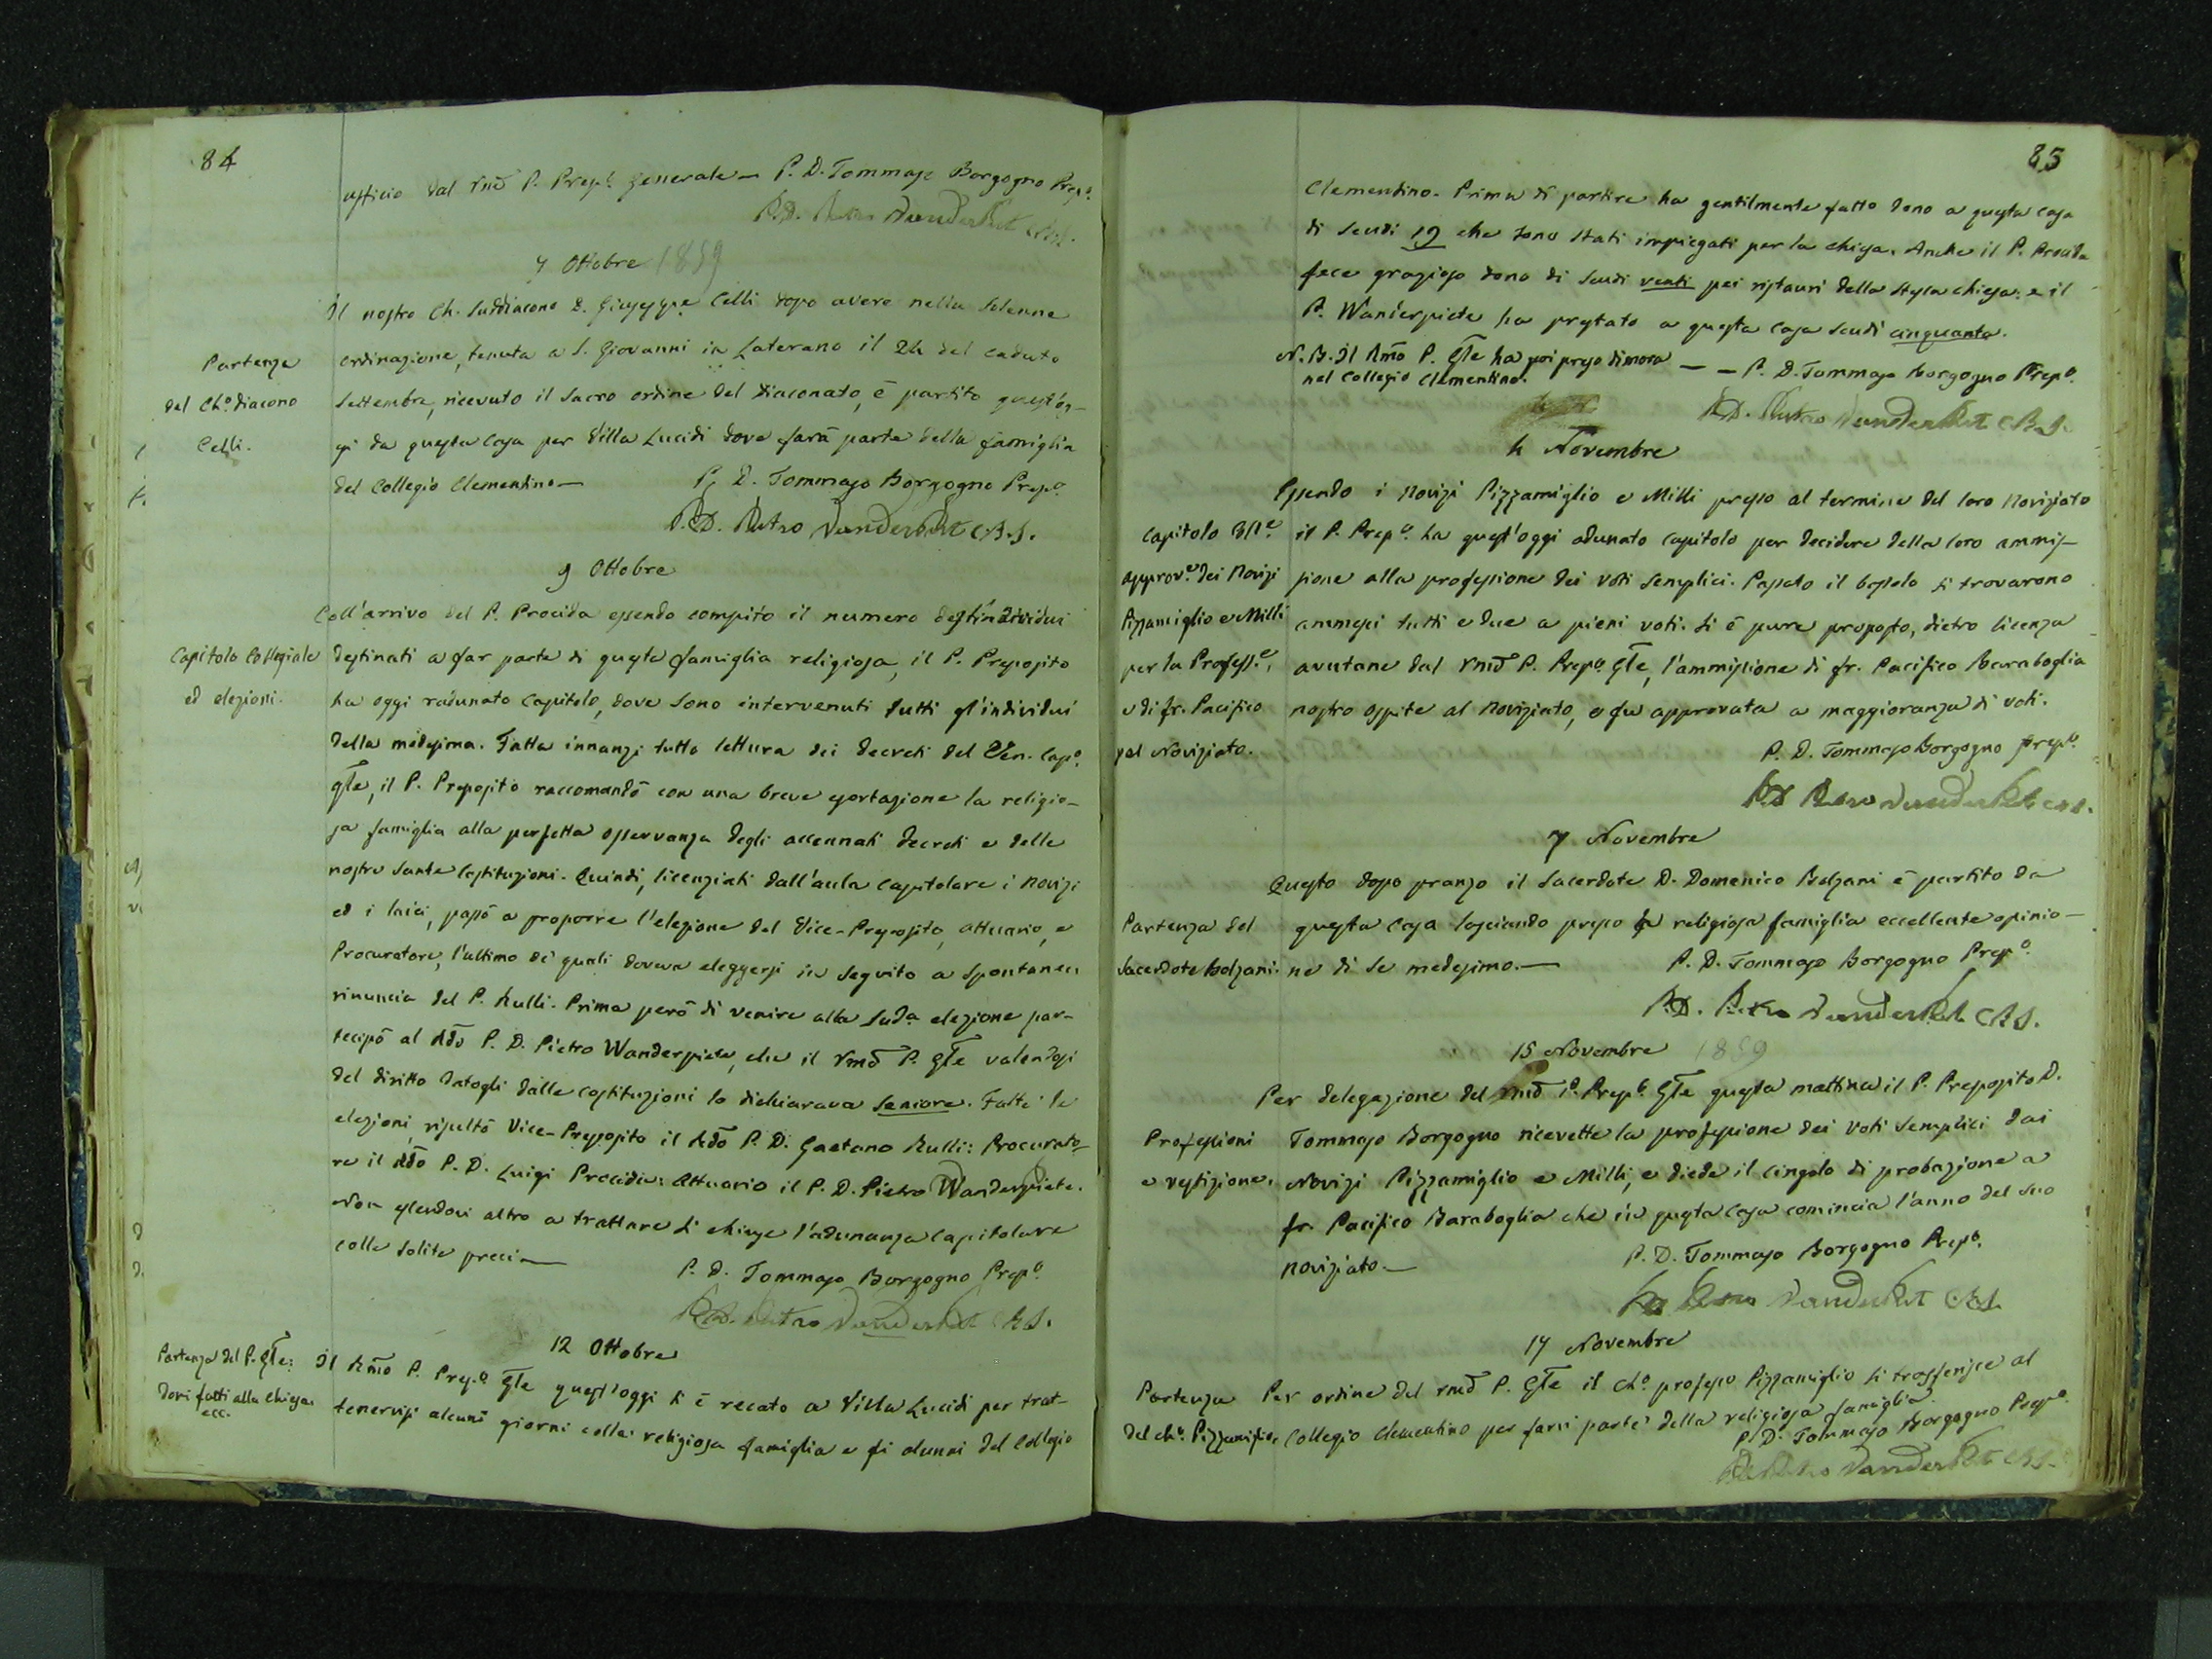 84
ufficio dal Rmõ P. Prep.º Generale — P. D. Tommaso Borgogno Prep.º
P. D. Pietro Vanderpiet CRS.
7 Ottobre 1859
Il nostro Ch. Suddiacono D. Giuseppe Celli dopo avere nella solenne
Partenza
del Ch.º Diacono
Celli.
ordinazione, tenuta a S. Giovanni in Laterano il 24 del caduto
Settembre, ricevuto il sacro ordine del Diaconato, è partito quest'og-
gi da questa casa per Villa Lucidi dove farà parte della famiglia
del Collegio Clementino — P. D. Tommaso Borgogno Prep.º
P. D. Pietro Vanderpiet CRS.
9 Ottobre
Coll'arrivo del P. Procida essendo compito il numero degl'individui
Capitolo Collegiale
ed elezioni.
destinati a far parte di questa famiglia religiosa, il P. Preposito
ha oggi radunato Capitolo, dove sono intervenuti tutti gl'individui
della medesima. Fatta innanzi tutto lettura dei decreti del Ven. Cap.º
Gĩe, il P. Preposito raccomandò con una breve esortazione la religio-
sa famiglia alla perfetta osservanza degli accennati decreti e delle
nostre sante Costituzioni. Quindi, licenziati dall'aula capitolare i Novizi
ed i laici, passò a proporre l'elezione del Vice-Preposito, Attuario, e
Procuratore, l'ultimo de' quali doveva eleggersi in seguito a spontanea
rinuncia del P. Rulli. Prima però di venire alla sud.a elezione par-
tecipò al Rdõ P. D. Pietro Wanderpiete, che il Rmõ P. Gĩe valendosi
del diritto datogli dalle costituzioni lo dichiarava Seniore. Fatte le
elezioni, risultò Vice-Preposito il Rdõ P. D. Gaetano Rulli: Procurato-
re il Rdõ P. D. Luigi Procida: Attuario il P. D. Pietro Wanderpiete.
Non essendovi altro a trattare si chiuse l'adunanza capitolare
colle solite preci — P. D. Tommaso Borgogno Prep.º
P. D. Pietro Vanderpiet CRS.
12 Ottobre
Partenza del P. Gĩe:
Doni fatti alla Chiesa.
ecc.
Il Rmõ P. Prep.º Gĩe quest'oggi si è recato a Villa Lucidi per trat-
tenervisi alcuni giorni colla religiosa famiglia e gi alunni del Collegio
85
Clementino. Prima di partire ha gentilmente fatto dono a questa casa
di scudi 19 che sono stati impiegati per la chiesa. Anche il P. Procida
fece grazioso dono di scudi venti pei ristauri della stessa chiesa: e il
P. Wanderpiete ha prestato a questa casa scudi cinquanta.
N. B. Il Rmõ P. Gĩe ha poi preso dimora
nel Collegio Clementino. — — P. D. Tommaso Borgogno Prep.º
P. D. Pietro Vanderpiet CRS.
4 Novembre
Essendo i Novizi Pizzamiglio e Milli presso al termine del loro Noviziato
Capitolo
approv.e dei Novizi
Pizzamiglio e Milli
per la Profess.e,
e di fr. Pacifico
pel Noviziato.
il P. Prep.º ha quest'oggi adunato Capitolo per decidere della loro ammis-
sione alla professione dei voti semplici. Passato il bossolo si trovarono
ammessi tutti e due a pieni voti. Si è pure proposto, dietro licenza
avutane dal Rmõ P. Prep.º Gĩe, l'ammissione di fr. Pacifico Baraboglia
nostro ospite al Noviziato, e fu approvata a maggioranza di voti.
P. D. Tommaso Borgogno Prep.º
P. D. Pietro Vanderpiet CRS.
7 Novembre
Questo dopo pranzo il Sacerdote D. Domenico Bolzani è partito da
Partenza del
Sacerdote Bolzani.
questa casa lasciando presso la religiosa famiglia eccellente opinio-
ne di se medesimo. — P. D. Tommaso Borgogno Prep.º
P. D. Pietro Vanderpiet CRS.
15 Novembre 1859
Per delegazione del Rmõ P. Prep.º Gĩe questa mattina il P. Preposito D.
Professioni
e vestizione.
Tommaso Borgogno ricevette la professione dei Voti semplici dai
Novizi Pizzamiglio e Milli, e diede il cingolo di probazione a
fr. Pacifico Baraboglia che in questa casa comincia l'anno del suo
noviziato. — P. D. Tommaso Borgogno Prep.º
P. D. Pietro Vanderpiet CRS.
17 Novembre
Partenza
del ch.º Pizzamiglio.
Per ordine del Rmõ P. Gĩe il Ch.º professo Pizzamiglio si trasferisce al
Collegio Clementino per farvi parte della religiosa famiglia.
P. D. Tommaso Borgogno Prep.º
P. D. Pietro Vanderpiet CRS.